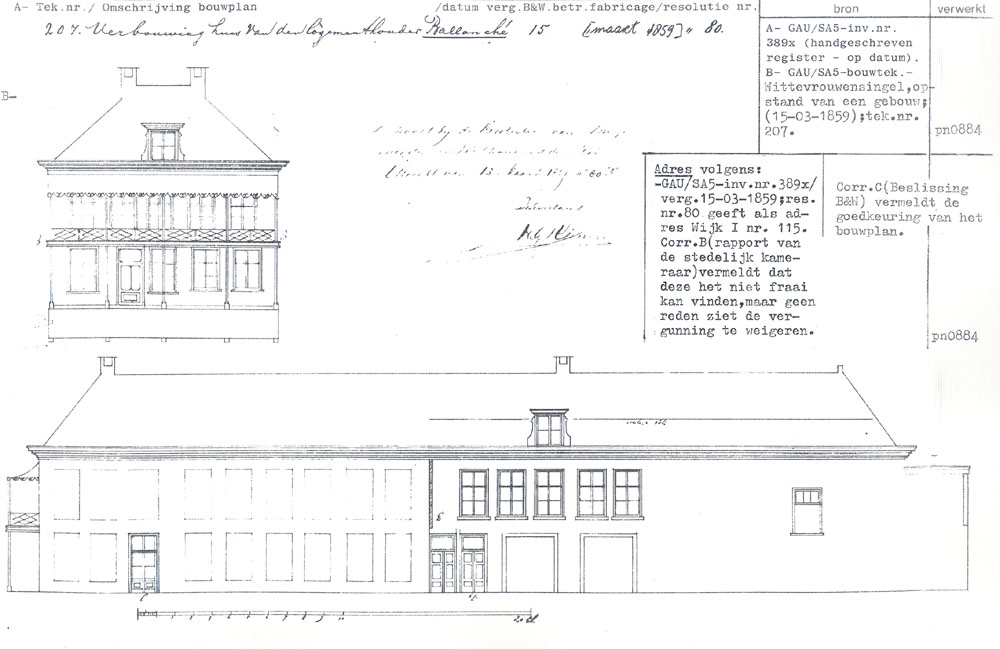 A- Tek.nr./ Omschrijving bouwplan /datum verg.B&W.betr.fabricage/resolutie nr.
bron
verwerkt
207. Verbouwing huis van den logementhouder Ballanché 15 [maart 1859] " 80.
A- GAU/SA5-inv.nr.
389x (handgeschreven
register - op datum).
B- GAU/SA5-bouwtek.-
Wittevrouwensingel,op-
stand van een gebouw;
(15-03-1859);tek.nr.
207.
pn0884
B-
Adres volgens:
-GAU/SA5-inv.nr.389x/
verg.15-03-1859;res.
nr.80 geeft als ad-
res Wijk I nr. 115.
Corr.B(rapport van
de stedelijk kame-
raar)vermeldt dat
deze het niet fraai
kan vinden,maar geen
reden ziet de ver-
gunning te weigeren.
Corr.C(Beslissing
B&W) vermeldt de
goedkeuring van het
bouwplan.
pn0884